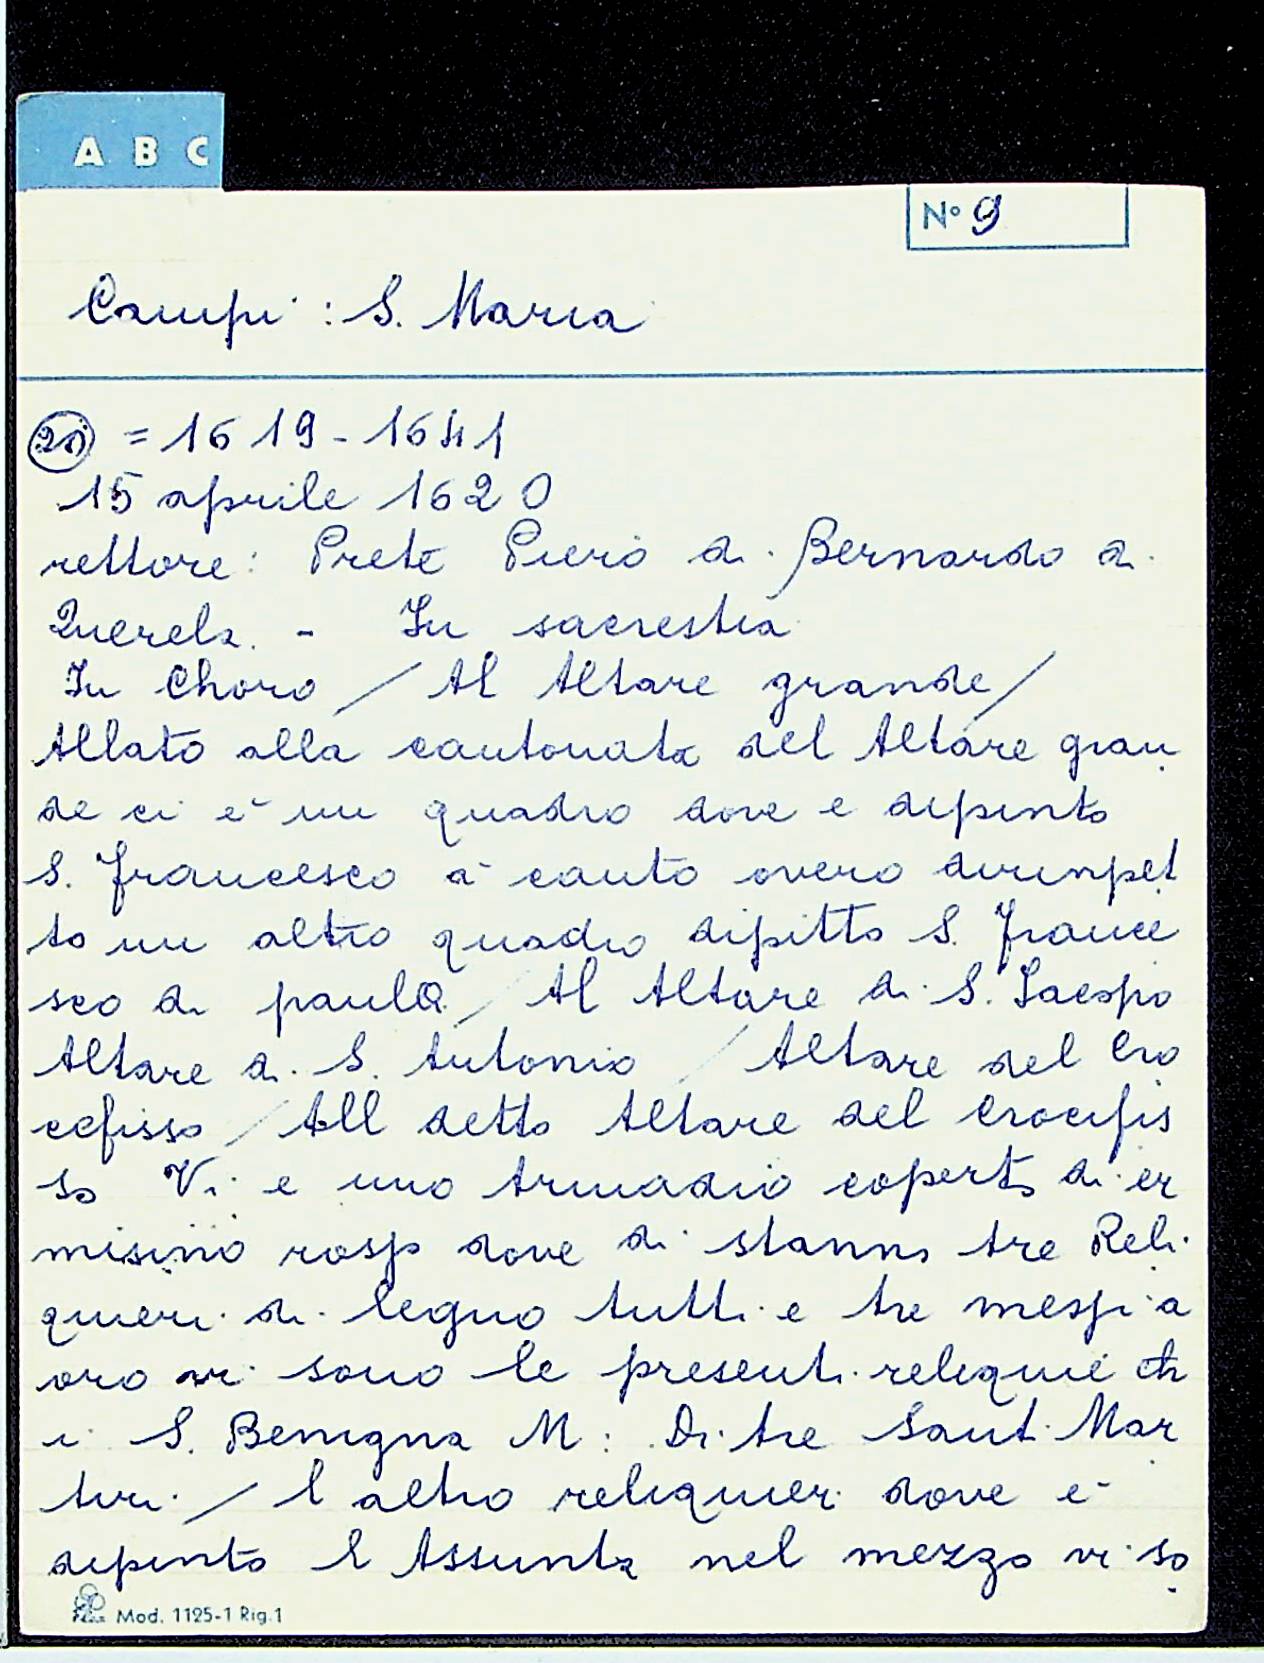 A B C
N° 9
Campi : S. Maria
= 1619 - 1641
15 aprile 1620
rettore : Prete Piero di Bernardo di
Querela. - In sacrestia
In Choro / Al Altare grande /
Allato alla cantonata del Altare gran
de ci è un quadro dove e dipinto
S. Francesco à canto overo dirinpet
to un altro quadro dipitto S. France
sco di paula / Al Altare di S. Iacopo
Altare di S. Antonio / Altare del Cro
cefisso / All detto Altare del Crocifis
so Vi e uno Armadio coperto di er
misino rosso dove di stanno tre Reli
quieri di legno tutti e tre messi a
oro vi sono le presenti reliquie
S. Benigna M : Di tre Santi Mar
tiri / l altro reliquieri dove è
dipinto l Assunta nel mezzo vi so
Mod. 1125-1 Rig. 1